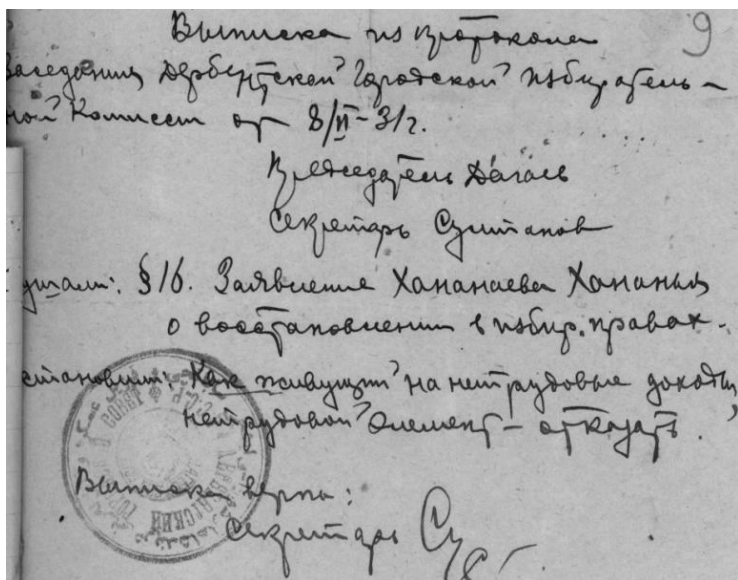 9
Выписка из протокола
Заседания Дербентской Городской избиратель-
ной Комиссии от 8/II-31г.
Председатель Дагаев
Секретарь Султанов
§ 16. Заявление Хананаева Хананья
о восстановлении в избир. правах.
становили: Как живущий на нетрудовые доходы,
нетрудовой элемент - отказать.
Выписка верна:
Секретарь
СОВЕТ
ДЕРБЕНТСКИЙ